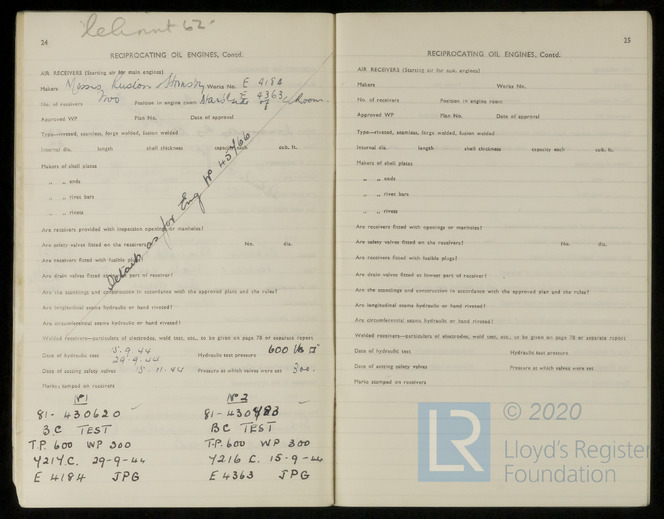 24
62
RECIPROCATING OIL ENGINES, Contd.
AIR RECEIVERS (Starting air for main engines)
Makers Messrs Ruston Hornsby Works No. E 4184
E 4363
No. of receivers Two Position in engine room Starb side of
Approved WP Plan No. Date of approval
Type—riveted, seamless, forge welded, fusion welded
Internal dia. length shell thickness capacity each cub. ft.
Makers of shell plates
„ „ ends
„ „ rivet bars
„ „ rivets
Details as for Eng Nº 45766
Are receivers provided with inspection openings or manholes?
Are safety valves fitted on the receivers? No. dia.
Are receivers fitted with fusible plugs?
Are drain valves fitted at lowest part of receiver?
Are the scantlings and construction in accordance with the approved plans and the rules?
Are longitudinal seams hydraulic or hand riveted?
Are circumferential seams hydraulic or hand riveted?
Welded receivers—particulars of electrodes, weld test, etc., to be given on page 78 or separate report
Date of hydraulic test 15.9.44 Hydraulic test pressure 600 lbs □"
29.9.44
Date of setting safety valves 15.11.44 Pressure at which valves were set 300.
Marks stamped on receivers
Nº1
81-430620
BC TEST
T.P. 600 WP 300
Y217C. 29-9-44
E 4184 JPG
Nº2
81-430483
BC TEST
T.P. 600 WP 300
Y216 C. 15-9-44
E 4363 JPG
25
RECIPROCATING OIL ENGINES, Contd.
AIR RECEIVERS (Starting air for aux. engines)
Makers Works No.
No. of receivers Position in engine room
Approved WP Plan No. Date of approval
Type—riveted, seamless, forge welded, fusion welded
Internal dia. length shell thickness capacity each cub. ft.
Makers of shell plates
„ „ ends
„ „ rivet bars
„ „ rivets
Are receivers fitted with openings or manholes?
Are safety valves fitted on the receivers? No. dia.
Are receivers fitted with fusible plugs?
Are drain valves fitted at lowest part of receiver?
Are the scantlings and construction in accordance with the approved plan and the rules?
Are longitudinal seams hydraulic or hand riveted?
Are circumferential seams hydraulic or hand riveted?
Welded receivers—particulars of electrodes, weld test, etc., to be given on page 78 or separate report
Date of hydraulic test Hydraulic test pressure
Date of setting safety valves Pressure at which valves were set
Marks stamped on receivers
LR
© 2020
Lloyd's Register
Foundation